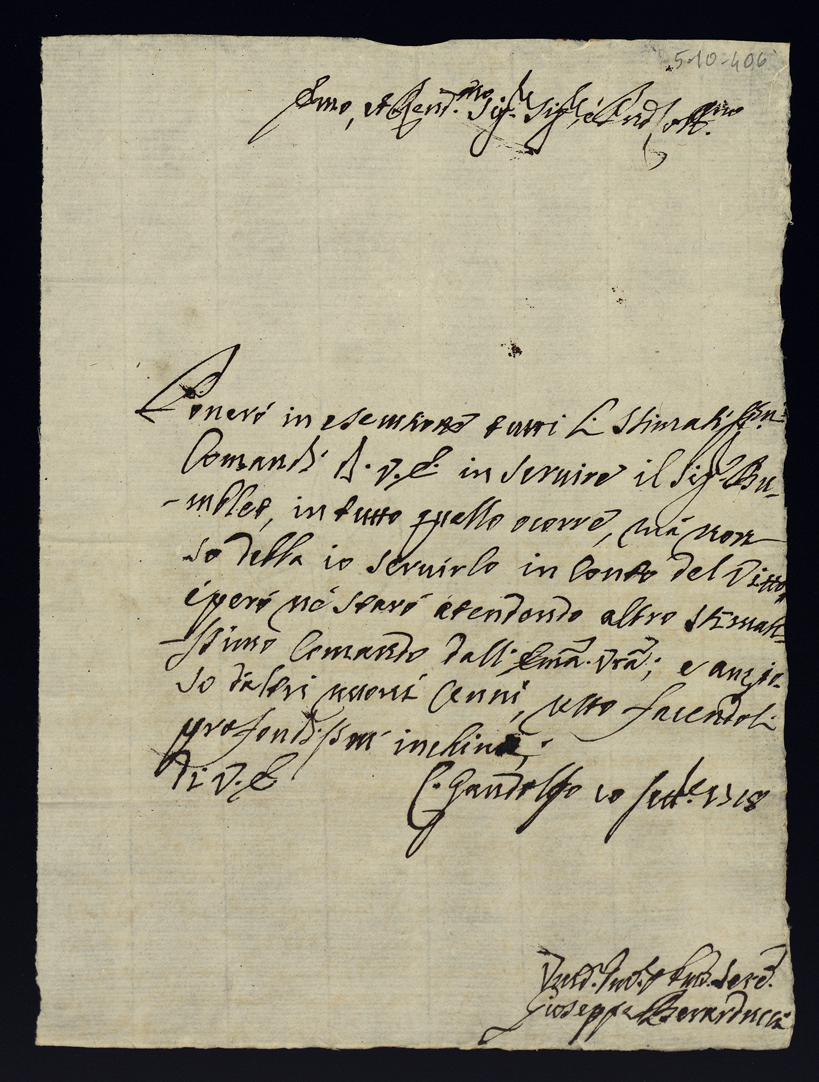 5-10-406
Emo, et Rend.mo Sig.r Sig.r e Prõn Col.mo
Ponerò in esecuzione tutti li Stimatiss.mi
Comandi di V.E. in servire il Sig.r Bu-
-mblet, in tutto quello ocorre, mà non
so della io servirlo in conto del Vitto,
è però né starò atendendo altro Stimatis-
simo Comando dall'Emã. Vrã; e anzio-
so di altri nuovi Cenni, resto facendoli
profondissimi inchini,
Di V.E.
C. Gandolfo 10 Sett.e 1718
Gioseppe Berarducci